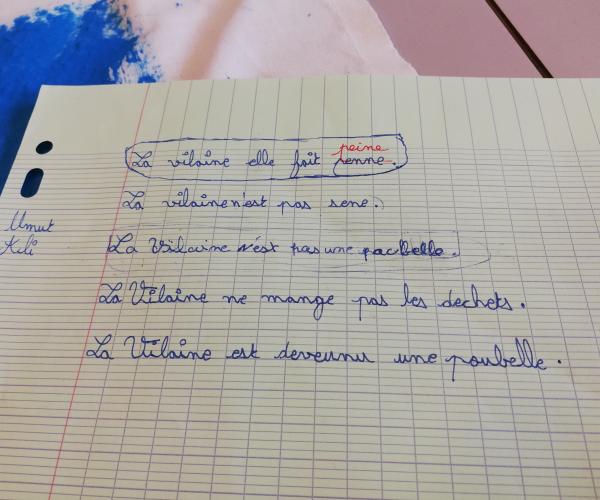 peine
La vilaine elle fait penne.
La vilaine n'est pas sene.
Umut
Kili
La Vilaine n'est pas une pacbelle.
La Vilaine ne mange pas les dechets.
La Vilaine est devenu une poubelle.